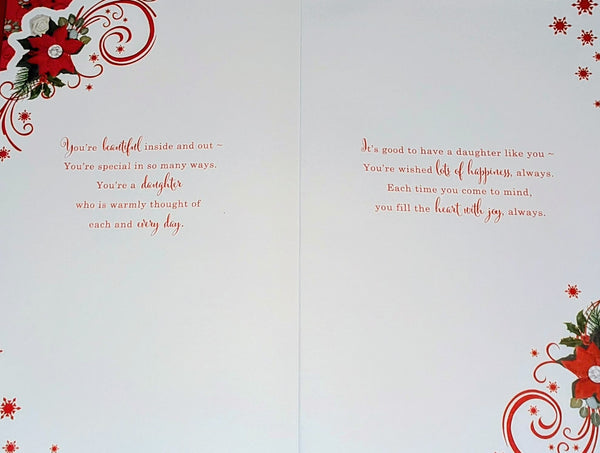 You're beautiful inside and out ~
You're special in so many ways.
You're a daughter
who is warmly thought of
each and every day.
It's good to have a daughter like you ~
You're wished lots of happiness, always.
Each time you come to mind,
you fill the heart with joy, always.